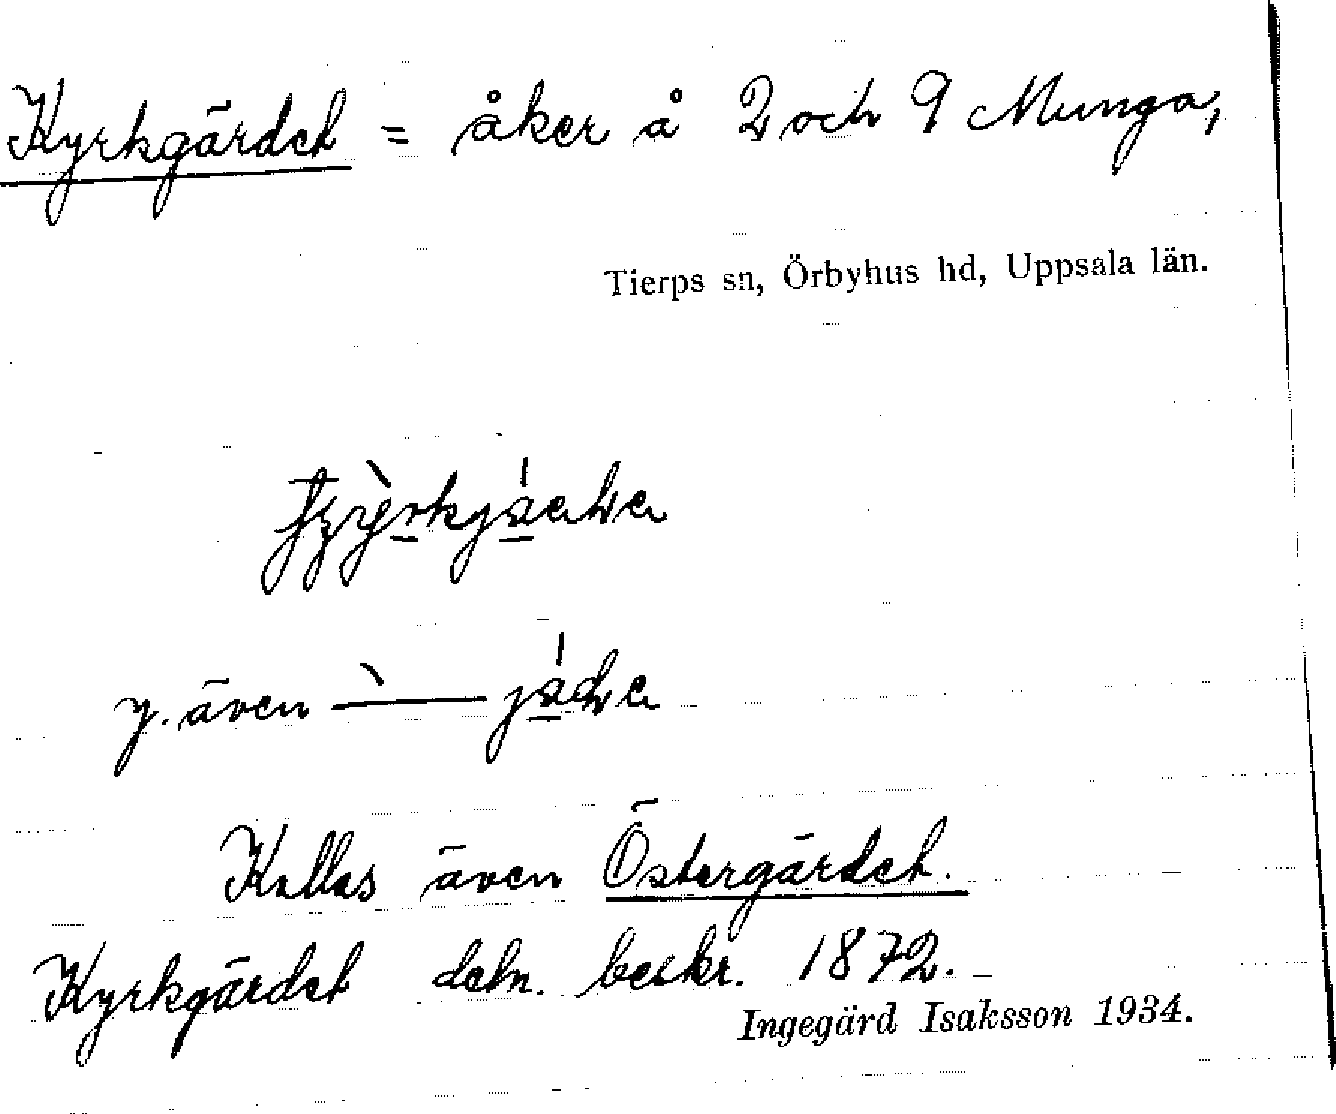 Kyrkgärdet = åker å 2 och 9 Munga,
Tierps sn, Örbyhus hd, Uppsala län.
y. även
Kallas även Östergärdet.
Kyrkgärdet deln. beskr. 1872.
Ingegärd Isaksson 1934.